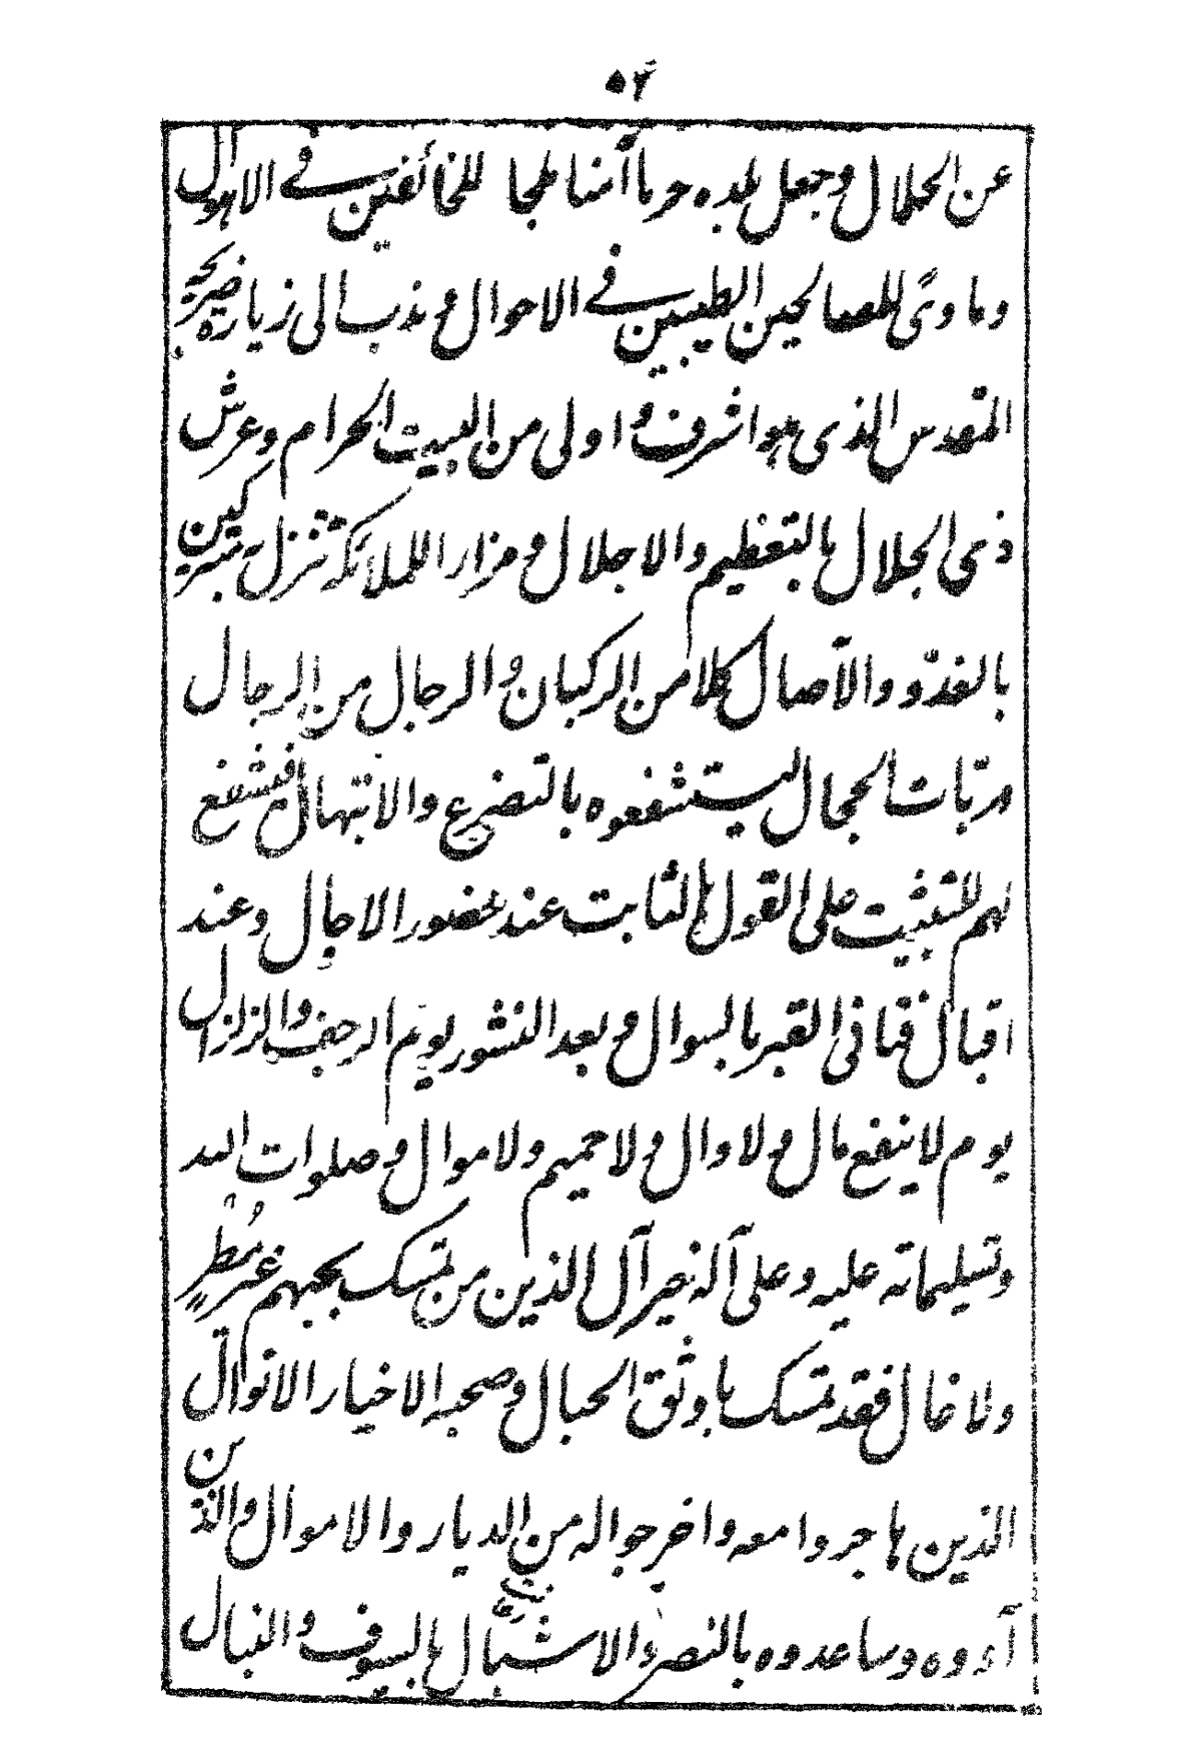 ۵۴
عن الحلال وجعل بلده حرما آمنا ملجا للخائفين في الاهوال
وماوًى للصالحين الطيبين في الاحوال وندب الى زيارة ضريحه
المقدس الذى هو اشرف و اولى من البيت الحرام وعرش
ذى الجلال بالتعظيم والاجلال ومزارا للملائكة تنزل متبركين
بالغدوّ والآصال كلا من الركبان والرجال من الرجال
وربّات الحجال ليستشفعوه بالتضرع والابتهال فيشفع
لهم للتثبيت على القول بالثابت عند حضور الاجال وعند
اقبال فتانى القبر بالسوال وبعد النشور يوم الرجف والزلزال
يوم لا ينفع مال ولا وال ولا حميم ولا موال وصلوات الله
وتسليماته عليه وعلى آله خير آل الذين من تمسك بحبهم غير مُطْرٍ
ولا غال فقد تمسك باوثق الحبال وصحبه الاخيار الاتوال
الذين هاجروا معه واخرجوا له من الديار والاموال والذين
آووه وساعدوه بالنصر والاشبال بالسيوف والنبال